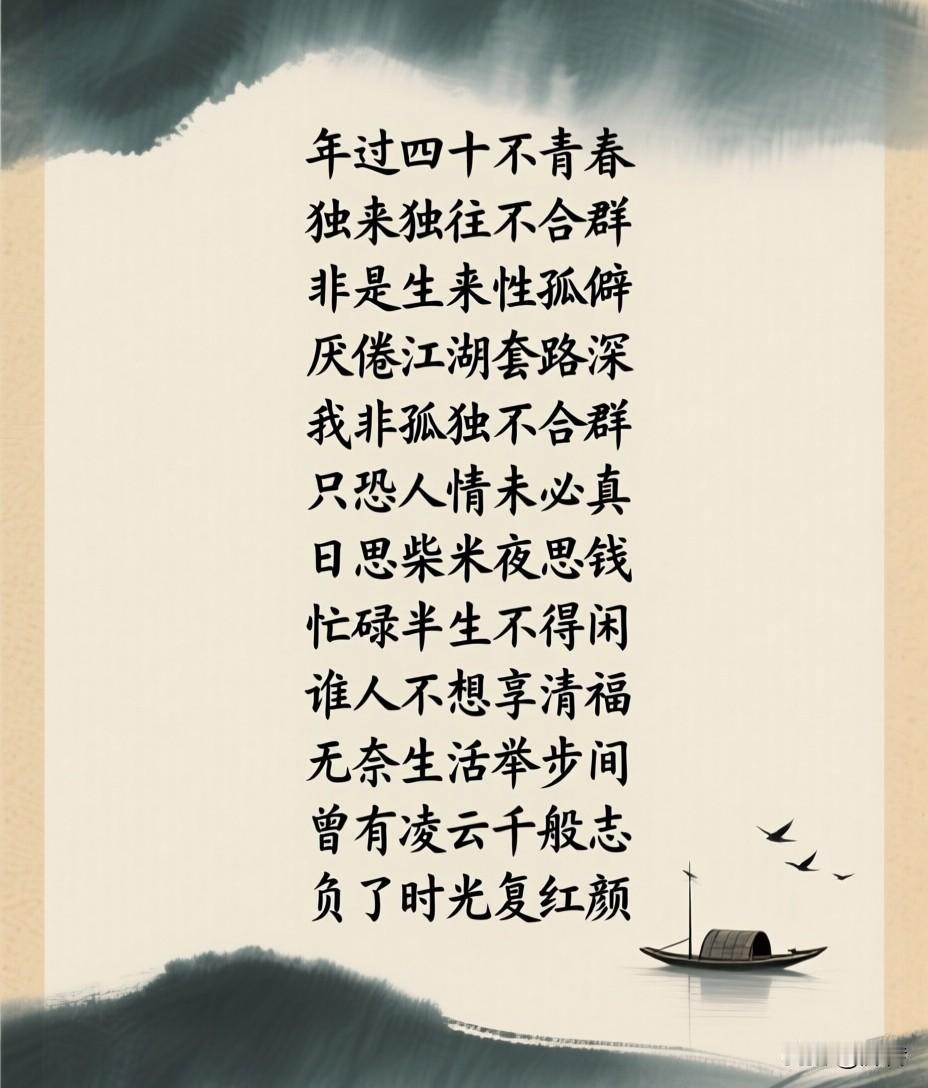 年过四十不青春
独来独往不合群
非是生来性孤僻
厌倦江湖套路深
我非孤独不合群
只恐人情未必真
日思柴米夜思钱
忙碌半生不得闲
谁人不想享清福
无奈生活举步间
曾有凌云千般志
负了时光复红颜